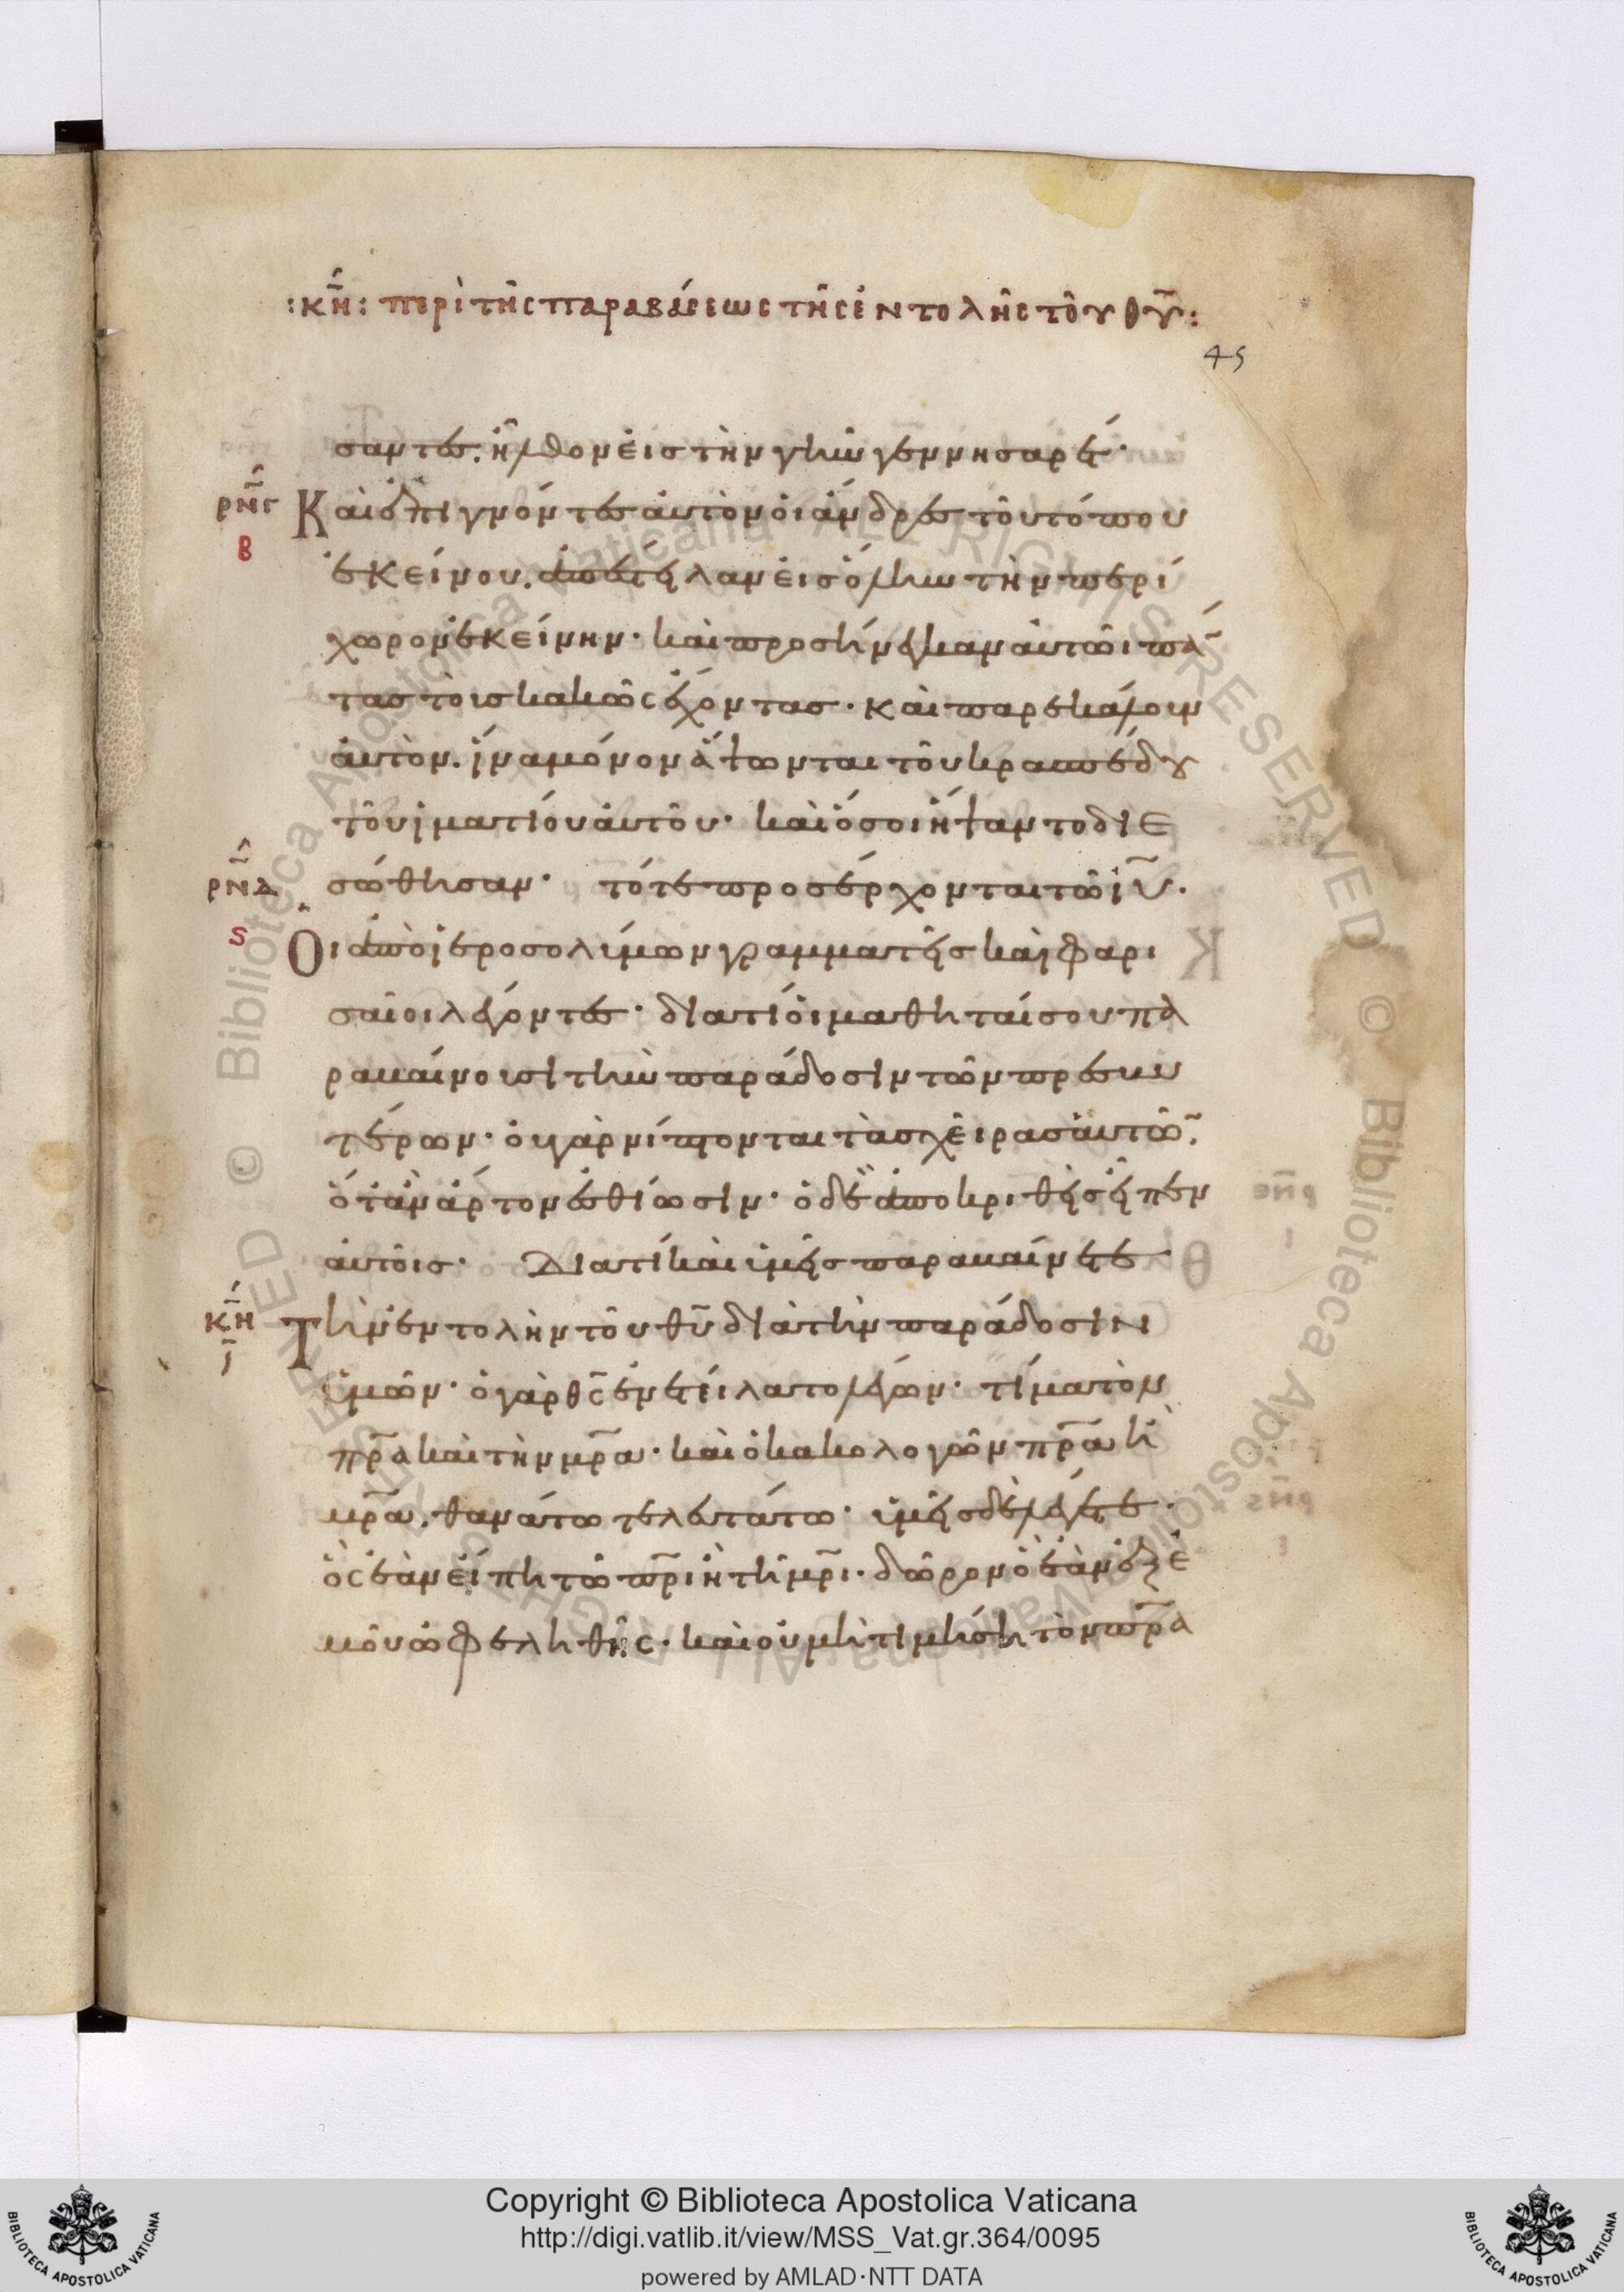 :κη: περὶ τῆς παραβάσεως τῆς ἐντολῆς τοῦ θυ:
45
σαντες. ἦλθον εἰς τὴν γῆν γεννησαρέτ·
ρνγ Καὶ ἐπιγνόντες αὐτὸν οἱ ἄνδρες τοῦ τόπου
β
ἐκείνου. ἀπέστειλαν εἰς ὅλην τὴν περί
χωρον ἐκείνην· καὶ προσήνεγκαν αὐτῶι πά
τας τοὺς κακῶς ἔχοντας· καὶ παρεκάλουν
αὐτὸν. ἵνα μόνον ἅψωνται τοῦ κρασπέδου
τοῦ ἱματίου αὐτοῦ· καὶ ὅσοι ἥψαντο διε
ρνδ σώθησαν· τότε προσέρχονται τῶ ιυ.
ς
Οἱ ἀπὸ ἱεροσολύμων γραμματεῖς καὶ φαρι
σαῖοι λέγοντες· διατί οἱ μαθηταί σου πα
ραβαίνουσι τὴν παράδοσιν τῶν πρεσβυ
τέρων· οὐ γὰρ νίπτονται τὰς χεῖρας αὐτῶ.
ὅταν ἄρτον ἐσθίωσιν· ὁ δὲ ἀποκριθεὶς εἶπεν
αὐτοῖς· Διατί καὶ ὑμεῖς παραβαίνετε
κη Τὴν ἐντολὴν τοῦ θυ διὰ τὴν παράδοσιν
ι
ὑμῶν· ὁ γὰρ θς ἐνετείλατο λέγων· τίμα τὸν
πρα καὶ τὴν μρα· καὶ ὁ κακολογῶν πρα ἢ
μρα. θανάτω τελευτάτω· ὑμεῖς δὲ λέγετε·
ὃς ἐὰν εἴπη τῶ πρι ἢ τῆ μρι· δῶρον ὃ ἐὰν ἐξ ἐ
μοῦ ὠφεληθῆς· καὶ οὐ μὴ τιμήση τὸν πρα
Copyright © Biblioteca Apostolica Vaticana
http://digi.vatlib.it/view/MSS_Vat.gr.364/0095
powered by AMLAD·NTT DATA